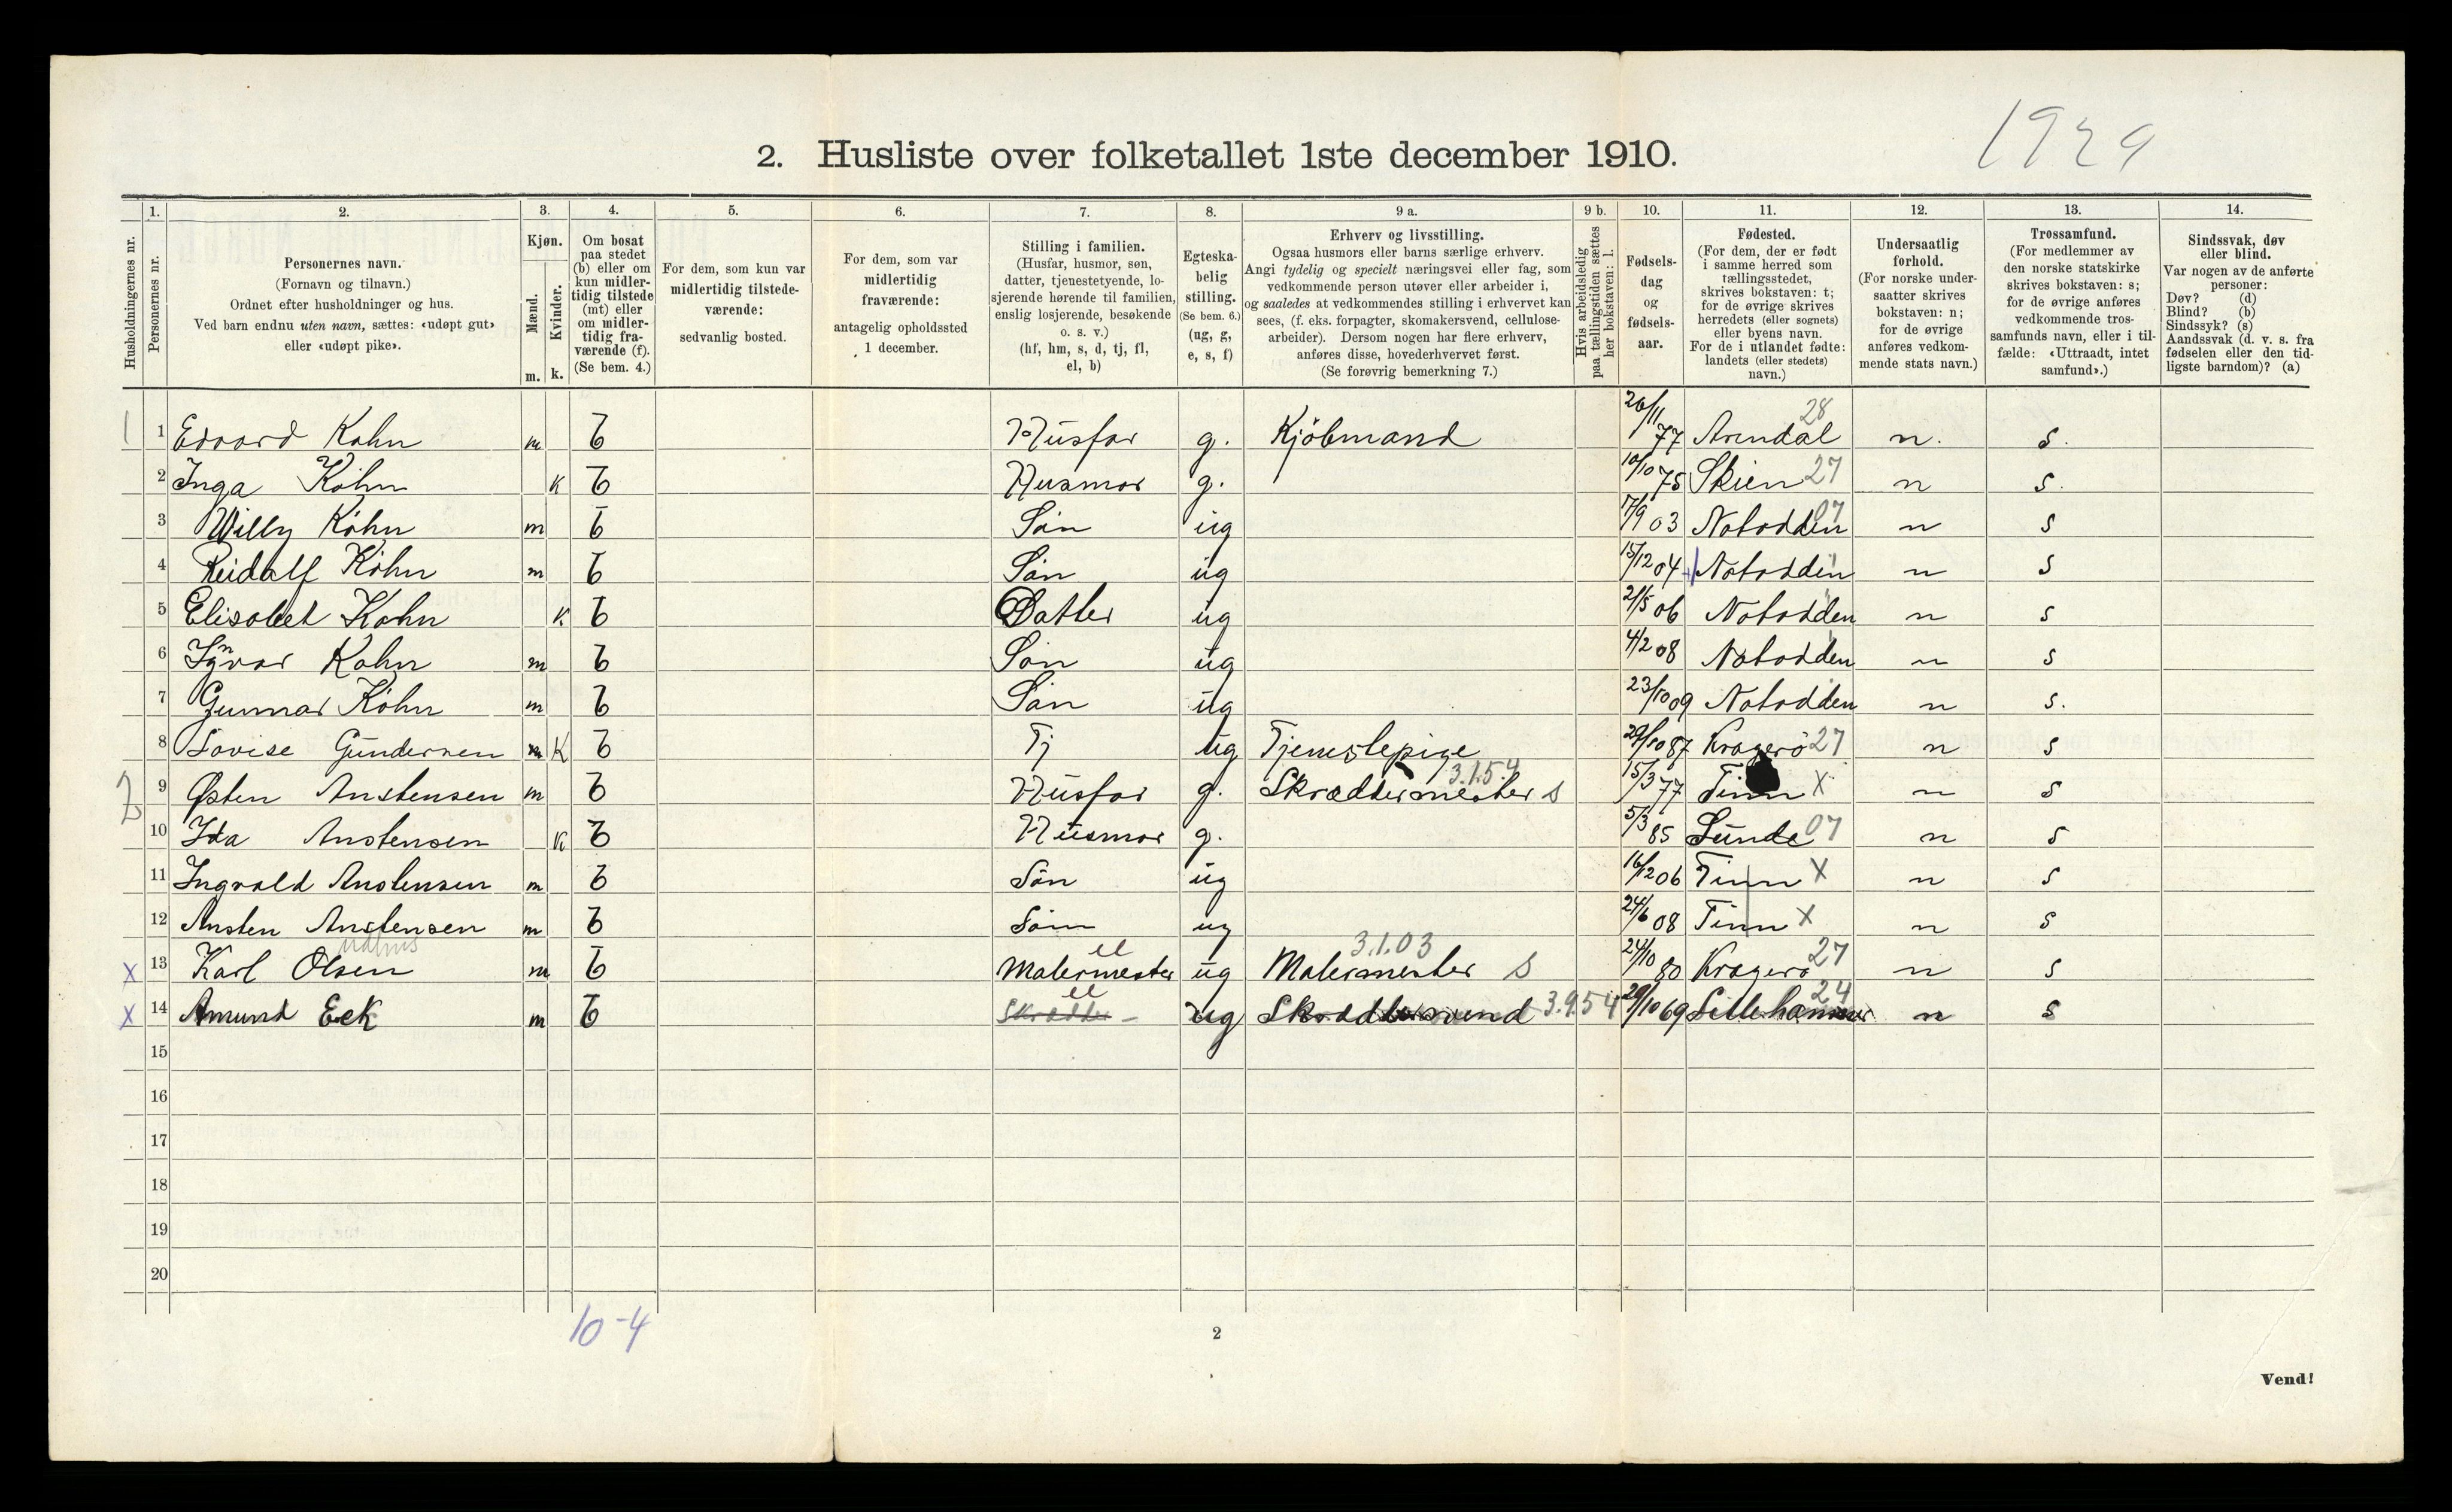 1929
2. Husliste over folketallet 1ste december 1910.
Husholdningernes nr.
1. Personernes nr.
2. Personernes navn. (Fornavn og tilnavn.) Ordnet efter husholdninger og hus. Ved barn endnu uten navn, sættes: «udøpt gut» eller «udøpt pike».
3. Kjøn. Mænd. m. Kvinder. k.
4. Om bosat paa stedet (b) eller om kun midlertidig tilstede (mt) eller om midlertidig fraværende (f). (Se bem. 4.)
5. For dem, som kun var midlertidig tilstedeværende: sedvanlig bosted.
6. For dem, som var midlertidig fraværende: antagelig opholdssted 1 december.
7. Stilling i familien. (Husfar, husmor, søn, datter, tjenestetyende, losjerende hørende til familien, enslig losjerende, besøkende o. s. v.) (hf, hm, s, d, tj, fl, el, b)
8. Egteskabelig stilling. (Se bem. 6.) (ug, g, e, s, f)
9 a. Erhverv og livsstilling. Ogsaa husmors eller barns særlige erhverv. Angi tydelig og specielt næringsvei eller fag, som vedkommende person utøver eller arbeider i, og saaledes at vedkommendes stilling i erhvervet kan sees, (f. eks. forpagter, skomakersvend, cellulosearbeider). Dersom nogen har flere erhverv, anføres disse, hovederhvervet først. (Se forøvrig bemerkning 7.)
9 b. Hvis arbeidsledig paa tællingstiden sættes her bokstaven: l.
10. Fødselsdag og fødselsaar.
11. Fødested. (For dem, der er født i samme herred som tællingsstedet, skrives bokstaven: t; for de øvrige skrives herredets (eller sognets) eller byens navn. For de i utlandet fødte: landets (eller stedets) navn.)
12. Undersaatlig forhold. (For norske undersaatter skrives bokstaven: n; for de øvrige anføres vedkommende stats navn.)
13. Trossamfund. (For medlemmer av den norske statskirke skrives bokstaven: s; for de øvrige anføres vedkommende trossamfunds navn, eller i tilfælde: «Uttraadt, intet samfund».)
14. Sindssvak, døv eller blind. Var nogen av de anførte personer: Døv? (d) Blind? (b) Sindssyk? (s) Aandssvak (d. v. s. fra fødselen eller den tidligste barndom)? (a)
1 1 Edvard Køhn m b Husfar g. Kjöbmand 26/11 77 Arendal 28 n. s.
2 Inga Köhn k b Husmor g. 10/10 75 Skien 27 n s.
3 Willy Köhn m b Sön ug 17/9 03 Notodden 07 n s
4 Reidulf Köhn m b Sön ug 15/12 04 Notodden n s
5 Elisabet Kohn k b Datter ug 21/5 06 Notodden n s
6 Yngvar Kohn m b Sön ug 4/2 08 Notodden n s
7 Gunnar Köhn m b Sön ug 23/10 09 Notodden n s.
8 Lovise Gundersen k b Tj ug Tjenestepige 29/10 87 Kragerö 27 n s
2 9 Østen Anstensen m b Husfar g. Skræddermester s 3.1.54 15/3 77 Tinn x n s
10 Ida Anstensen k b Husmor g. 5/3 85 Lunde 07 n s
11 Ingvald Anstensen m b Sön ug 16/12 06 Tinn x n s
12 Ansten Anstensen m b Sön ug 24/6 08 Tinn x n s
x 13 Karl Olsen m b Malermester el ug Malermester s 3.1.03 24/10 80 Kragerø 27 n s
x 14 Amund Eek m b Skrædder el ug Skræddersvend 3.9.54 29/10 69 Lillehammer 24 n s
15
16
17
18
19
20
10-4
2
Vend!